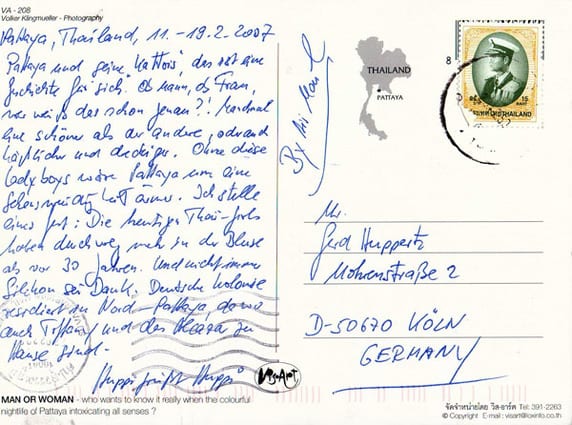 VA - 208
Volker Klingmueller - Photography
Pattaya, Thailand, 11. - 19.2.2007
Pattaya und seine "Kattois", das ist eine
Geschichte für sich. Ob Mann, ob Frau,
wer weiß das schon genau?! Manchmal
eine schöner als der andere, oftmals
häßlicher und dreckiger. Ohne diese
Ladyboys wäre Pattaya um eine
Sehenswürdigkeit ärmer. Ich stelle
eines fest: Die heutigen Thai-Girls
haben durchweg mehr in der Bluse
als vor 30 Jahren. Und nicht immer
Silikon sei Dank. Deutsche Kolonie
residiert in Nord-Pattaya, da wo
auch Tiffany und das Alcazar zu
Hause sind.
Huppi grüßt Huppi
VisArt
MAN OR WOMAN - who wants to know it really when the colourful
nightlife of Pattaya intoxicating all senses ?
By Air Mail
THAILAND
PATTAYA
8
15
ประเทศไทย THAILAND
Mr.
Gerd Huppertz
Mohrenstraße 2
D-50670 KÖLN
GERMANY
จัดจำหน่ายโดย วิส-อาร์ต Tel: 391-2263
© Copyright E-mail : visart@loxinfo.co.th